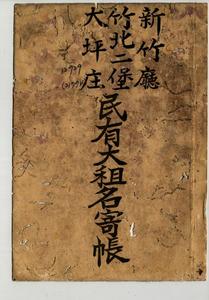 新竹廳
竹北二堡
大坪庄
民有大租名寄帳